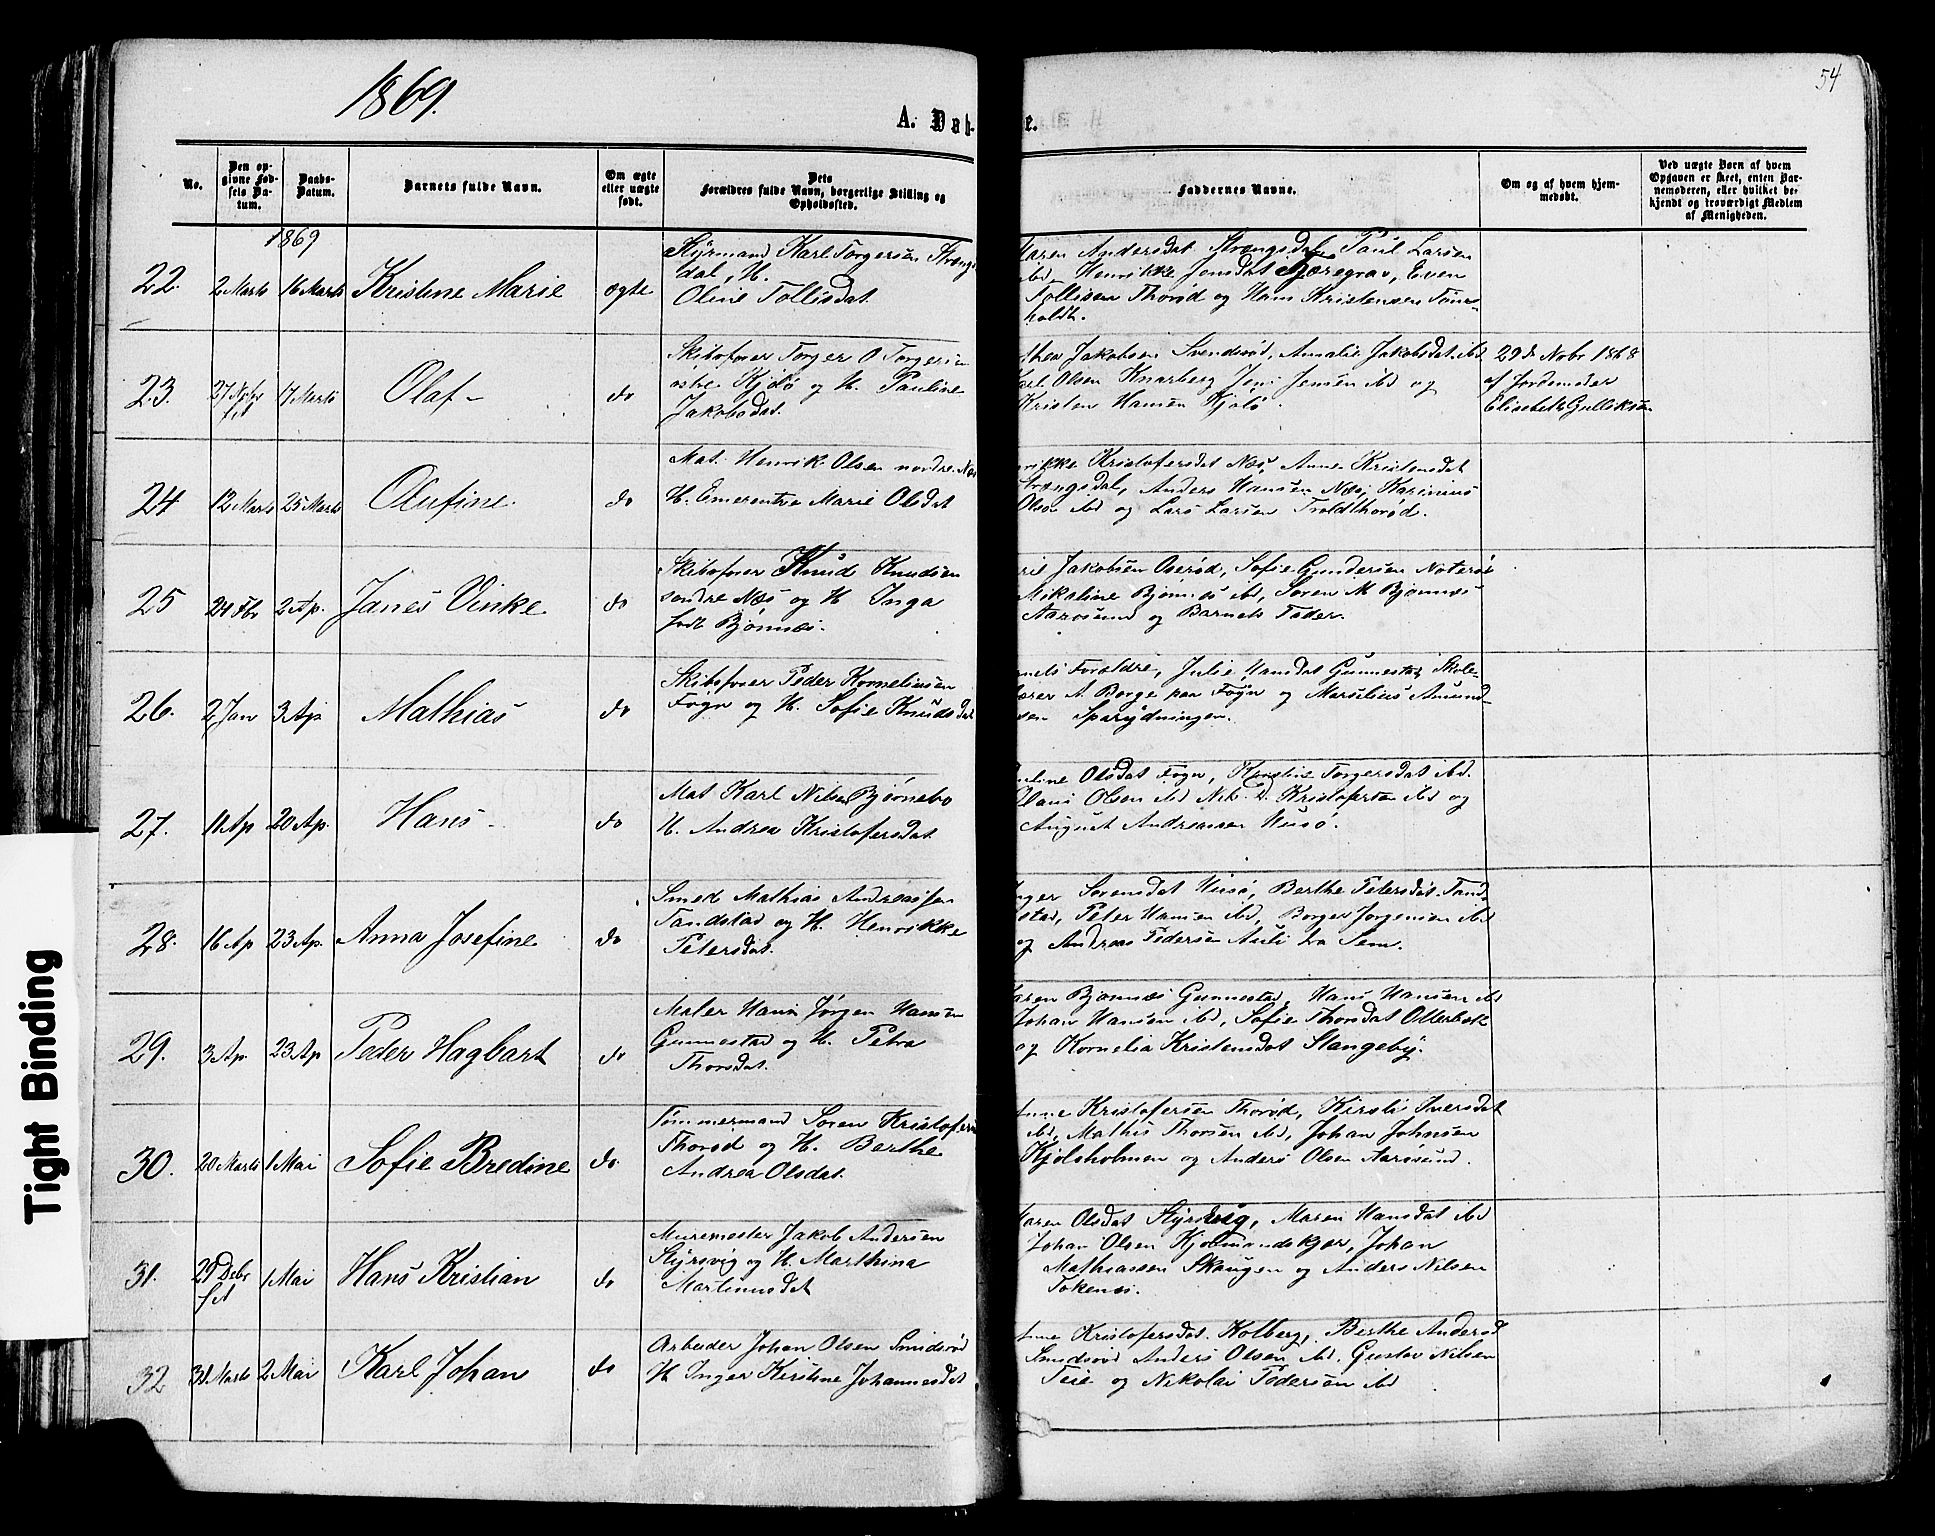 1869.
54
A. Dab-
e.
No.
Den op-
givne Fød-
sels Da-
tum.
Daabs-
Datum.
Barnets fulde Navn.
Om ægte
eller uægte
født.
Dets
Forældres fulde Navn, borgerlige Stilling og
Opholdssted.
Faddernes Navne.
Om og af hvem hjem-
medøbt.
Ved uægte Børn af hvem
Opgaven er skeet, enten Bar-
nemoderen, eller hvilket be-
kjendt og troværdigt Medlem
af Menigheden.
1869
22. 2 Marts 16 Marts Kristine Marie ægte
Styrmand Karl Torgersen Strængs
dal, H.
Oline Tollisdat.
Maren Andersdat Strængsdal, Paul Larsen
ibd, Henrikke Jensdat Gjæregrav, Even
Tollisen Thorød og Hans Kristensen Tøns-
holdt.
23. 27 Nobr 17 Marts Olaf - do
Skibsfører Torger O Torgersen
østre Kjølø og H. Pauline
Jakobsdat.
thea Jakobsen Svendsrød, Amalie Jakobsdat. ibd
Karl Olsen Knarberg Jens Jensen ibd og
Kristen Hansen Kjølø.
29de Nobr 1868
af Jordemoder
Elisabeth Gulliksen
24 12 Marts 25 Marts Olufine do
Mat. Henrik Olsen nordre Næs
H. Emerentze Marie Olsdat
rikke Kristofersdat Næs, Anne Kristensdat
Strængsdal, Anders Hansen Næs, Karinius
Olsen ibd og Lars Larsen Troldthorød.
25 24 Fbr 2 Ap. Janes Vinke do
Skibsfører Knud Knudsen
søndre Næs og H Inga
født Bjønnæs.
Jakobsen Oserød, Sofie Gundersen Nøterø
Nikoline Bjønnes ibd, Søren M Bjønnæs
Aarøsund og Barnets Fader.
26. 2 Jan 3 Ap Mathias do
Skibsfører Peder Korneliusen
Føgn og H. Sofie Knudsdat
nets Forældre, Julie Hansdat Gunnestad, Skole-
lærer A. Borge paa Føgn og Marsilius Amund-
sen Sparrydningen.
27. 11 Ap 20 Ap. Hans - do
Mat Karl Nilsen Bjørnebo
H. Andrea Kristofersdat
Pauline Olsdat Føgn, Kirstine Torgersdat ibd.
Hans Olsen ibd Nik. A. Kristofersen ibd og
August Andreassen Husø.
28. 16 Ap 23 Ap. Anna Josefine do
Smed Mathias Andreassen
Tandstad og H. Henrikke
Petersdat.
Inger Sørensdat Husø, Berthe Petersdat. Tand-
stad, Peter Hansen ibd, Borger Jørgensen ibd
og Andreas Pedersen Auli fra Sem.
29. 3 Ap. 23 Ap Peder Hagbart do
Maler Hans Jørgen Hansen
Gunnestad og H. Petra
Thorsdat.
Karen Bjønnæs Gunnestad, Hans Hansen ibd
Johan Hansen ibd, Sofie Thorsdat Otterbæk
og Kornelia Kristensdat Slangeby.
30. 20 Marts 1 Mai Sofie Bredine do.
Tømmermand Søren Kristofersen
Thorød og H. Berthe
Andrea Olsdat.
Anne Kristofersen Thorød, Kirsti Iversdat
ibd, Mathis Thorsen ibd, Johan Johnsen
Kjølsholmen og Anders Olsen Aarøsund.
31. 29 Debr 1 Mai Hans Kristian do
Muremester Jakob Andersen
Styrsvig og H. Marthina
Martinusdat
Maren Olsdat Styrsvig, Maren Hansdat ibd
Johan Olsen Kjølmandskjær, Johan
Mathiassen Skaugen og Anders Nilsen
Tokenæs.
32 31 Marts 2 Mai Karl Johan do
Arbeider Johan Olsen Smidsrød
H Inger Kirstine Johannesdat
Anne Kristofersdat. Kolberg, Berthe Andersd
Smidsrød Anders Olsen ibd, Gustav Nilsen
Teie og Nikolai Pedersen ibd
Tight Binding